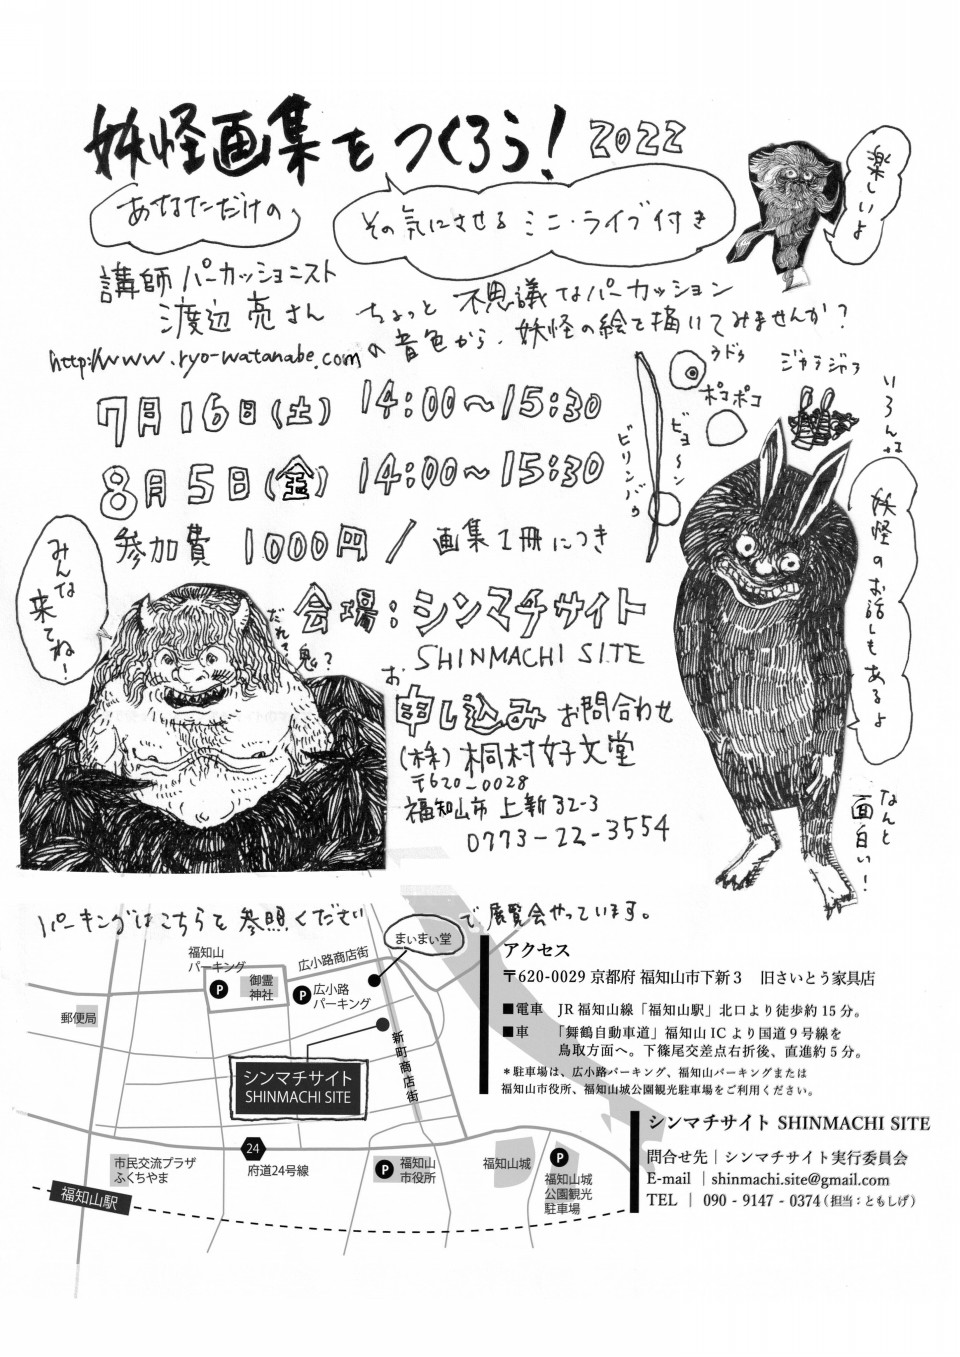 妖怪画集をつくろう! 2022
あなただけの
その気にさせる ミニ・ライブ付き
楽しいよ
講師 パーカッショニスト
渡辺 亮さん
http://www.ryo-watanabe.com
ちょっと 不思議なパーカッション
の音色から、妖怪の絵を描いてみませんか?
7月16日(土) 14:00〜15:30
8月5日(金) 14:00〜15:30
参加費 1000円 / 画集1冊につき
ウドゥ
ポコポコ
ジャラジャラ
ビヨ〜ン
ビリンバウ
いろんな
妖怪のお話しもあるよ
なんと
面白い!
みんな
来てね!
だれ?
鬼?
会場:シンマチサイト
SHINMACHI SITE
お申し込み お問合わせ
(株)桐村好文堂
〒620-0028
福知山市 上新32-3
0773-22-3554
パーキングはこちらを参照ください
まぃまぃ堂
で展覧会やっています。
福知山
パーキング
御霊
神社
広小路商店街
広小路
パーキング
郵便局
新町商店街
シンマチサイト
SHINMACHI SITE
24
府道24号線
市民交流プラザ
ふくちやま
福知山
市役所
福知山城
福知山城
公園観光
駐車場
福知山駅
P
P
P
P
アクセス
〒620-0029 京都府 福知山市下新3 旧さいとう家具店
■電車 JR福知山線「福知山駅」北口より徒歩約15分。
■車 「舞鶴自動車道」福知山ICより国道9号線を
鳥取方面へ。下篠尾交差点右折後、直進約5分。
*駐車場は、広小路パーキング、福知山パーキングまたは
福知山市役所、福知山城公園観光駐車場をご利用ください。
シンマチサイト SHINMACHI SITE
問合せ先|シンマチサイト実行委員会
E-mail |shinmachi.site@gmail.com
TEL | 090 - 9147 - 0374(担当:ともしげ)